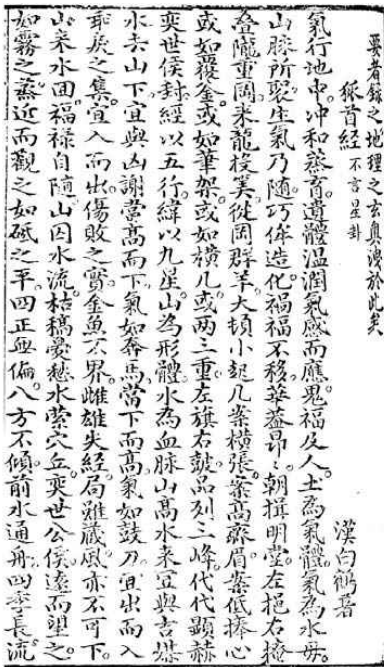 要者錄之地理之玄奧洩於此矣
狐首經 不言星卦 漢白鶴著
氣行地中。冲和蒸育。遺體温潤。氣感而應。鬼福及人。土為氣體。氣為水母。
山脉所裂。生氣乃随。巧侔造化。禍福不移。華盖昂〻。朝揖明堂。左挹右擦
叠隴重岡。来龍投美。從岡群羊。大頓小起。几案横張。案高齊眉。案低捧心
或如覆釜。或如筆架。或如横几。或两三重。左旗右皷。品列三峰。代代顕赫
奕世侯封。經以五行。緯以九星。山為形體。水為血脉。山髙水来。宜與吉媒
水去山下。宜與凶謝。當高而下。氣如奔馬。當下而高。氣如鼓刀。宜出而入
乖戾之集。宜入而出。傷敗之實。金魚不界。雌雄失經。局雖藏風。亦不可下。
山来水囬。福禄自随。山囚水流。枯槁憂愁。水縈穴丘。奕世公侯。遠而望之。
如霧之蒸。近而觀之。如砥之平。四正無偏。八方不傾。前水通舟。四季長流